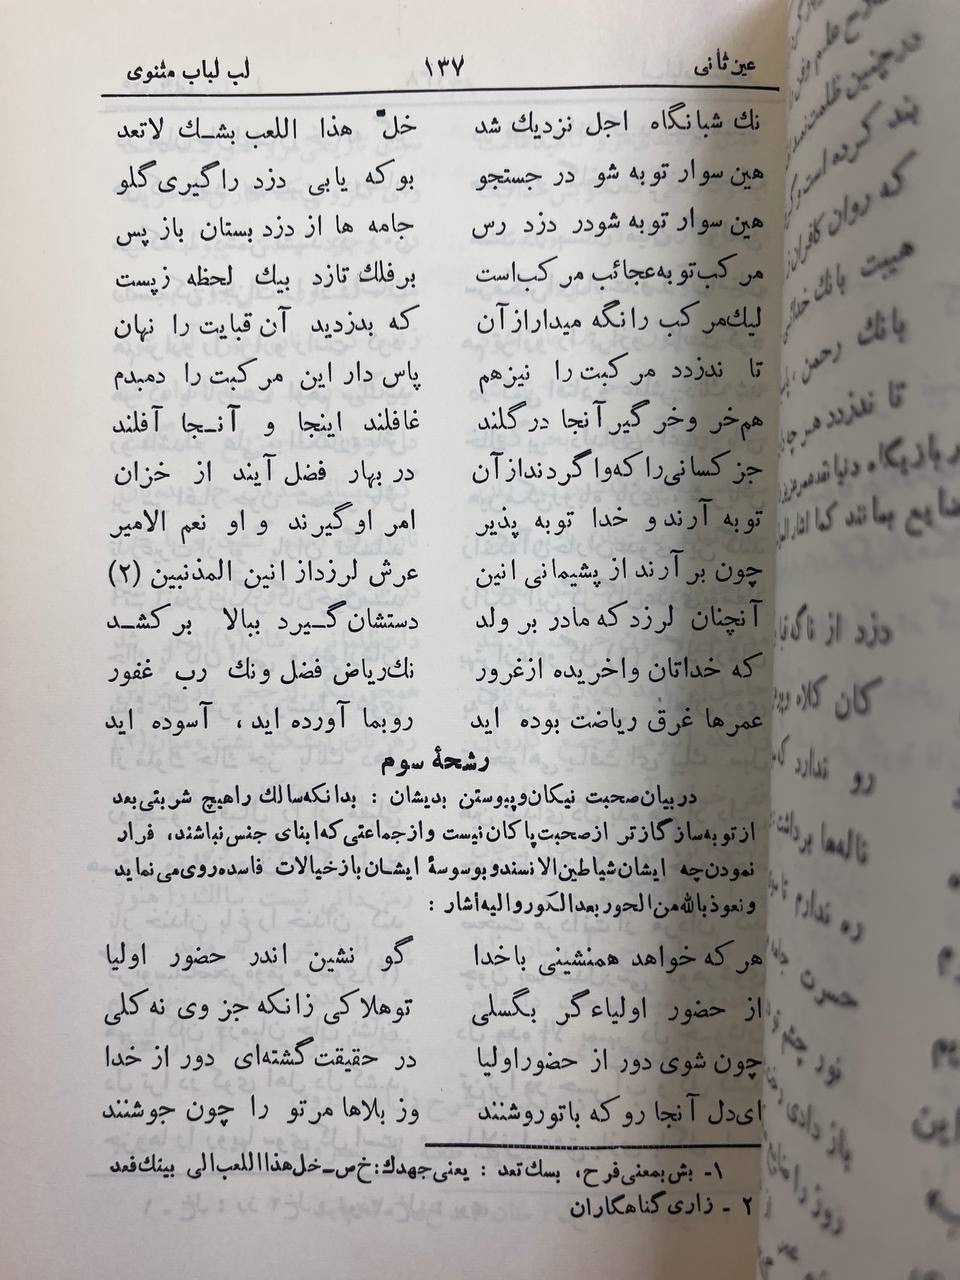 عین ثانی ۱۳۷ لب لباب مثنوی
نك شبانگاه اجل نزدیك شد خلّ هذا اللعب بشـك لاتعد
هین سوار توبه شو در جستجو بو که یابی دزد راگیری گلو
هین سوار توبه شودر دزد رس جامه ها از دزد بستان باز پس
مرکب توبه عجائب مرکب است برفلك تازد بیك لحظه زپست
لیك مرکب رانگه میدارازآن که بدزدید آن قبایت را نهان
تا ندزدد مرکبت را نیزهم پاس دار این مرکبت را دمبدم
هم خر وخرگیر آنجا درگلند غافلند اینجا و آنـجا آفلند
جز کسانی را که واگردندازآن در بهار فضل آیند از خزان
توبه آرند و خدا توبه پذیر امر اوگیرند و او نعم الامیر
چون برآرند از پشیمانی انین عرش لرزداز انین المذنبین (۲)
آنچنان لرزد که مادر بر ولد دستشان گـیرد ببالا برکشـد
که خداتان واخریده ازغرور نك ریاض فضل ونك رب غفور
عمرها غرق ریاضت بوده اید روبما آورده اید، آسوده اید
رشحۀ سوم
در بیان صحبت نیکان و پیوستن بدیشان : بدانکه سالك راهیچ شربتی بعد
از توبه سازگازتر ازصحبت پاکان نیست و ازجماعتی که ابنای جنس نباشند، فرار
نمودن چه ایشان شیاطین الانسند و بوسوسۀ ایشان بازخیالات فاسده روی می نماید
و نعوذ بالله من الحور بعد الکور والیه أشار :
هر که خواهد همنشینی باخدا گو نشین اندر حضور اولیا
از حضور اولیاءگر بگسلی توهلاکی زانکه جز وی نه کلی
چون شوی دور از حضوراولیا در حقیقت گشته‌ای دور از خدا
ای دل آنجا رو که باتوروشنند وز بلاها مرتو را چون جوشنند
۱- بش بمعنی فرح، بسك تعد : یعنی جهدك: خ ص ـ خل هذا اللعب الی بینك فعد
۲ - زاری گناهکاران